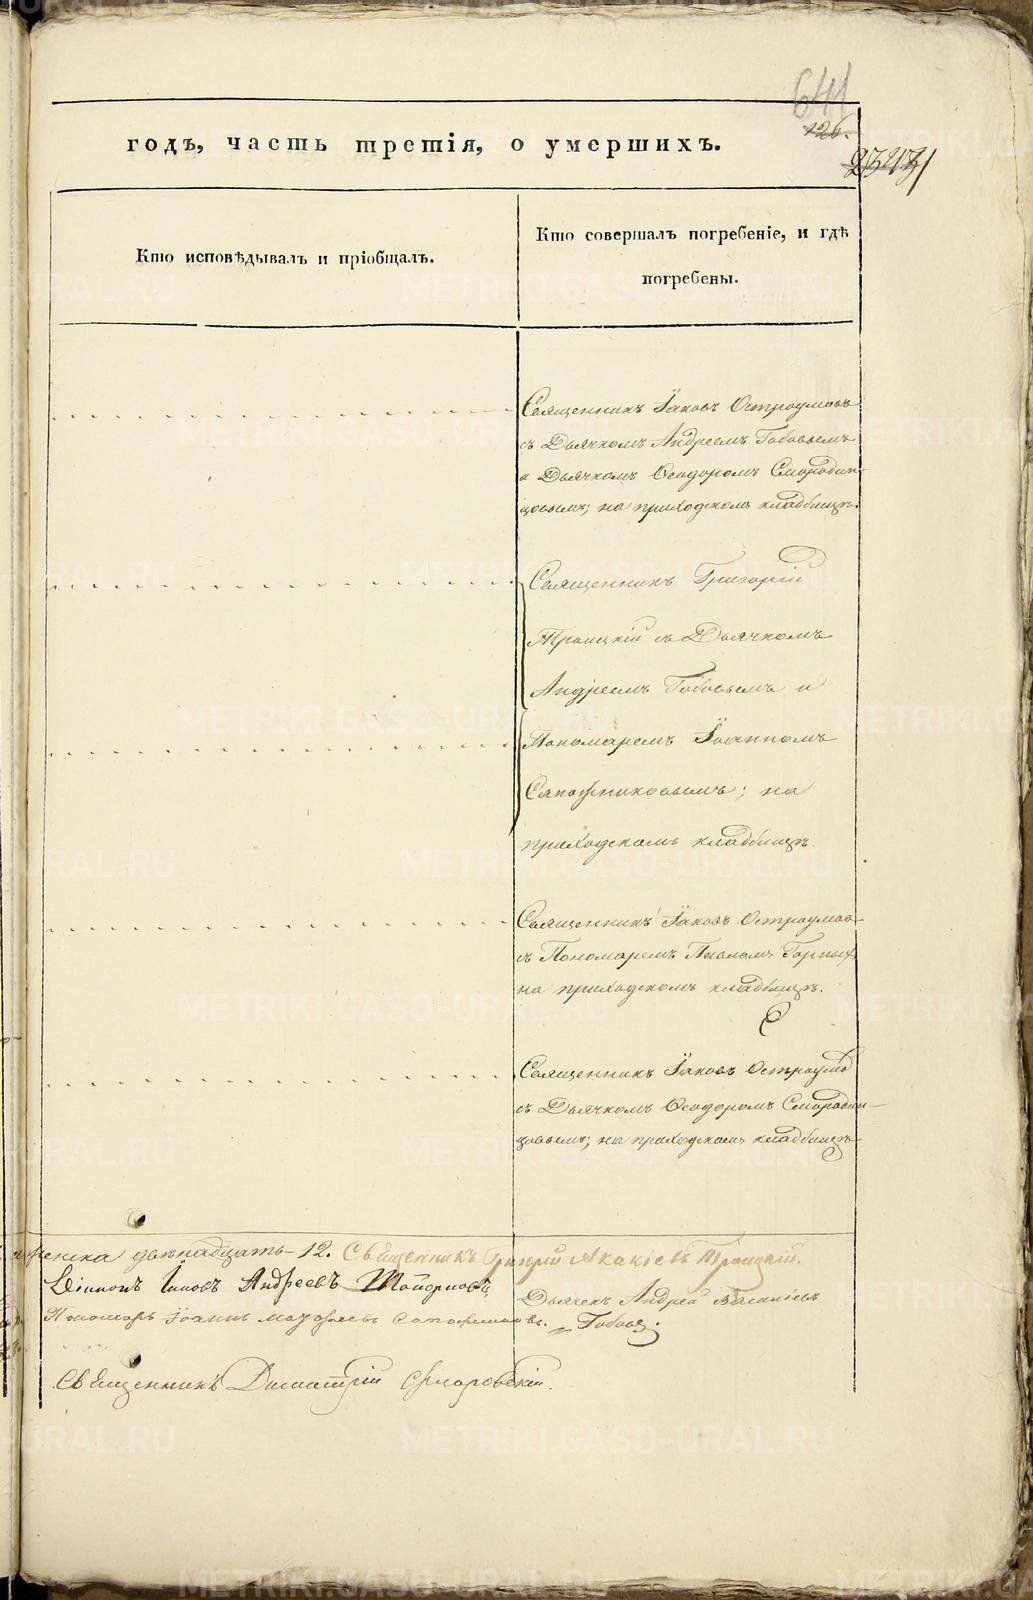 641
126.
годъ, часть третія, о умершихъ.
Кто исповѣдывалъ и пріобщалъ.
Кто совершалъ погребеніе, и гдѣ
погребены.
Священникъ Іаковъ Остроумовъ
съ Дьячкомъ Андреемъ Бобовымъ
и Дьячкомъ Ѳеодоромъ Смородин-
цовымъ; на приходскомъ кладбищѣ.
Священникъ Григорій
Троицкій съ Дьячкомъ
Андреемъ Бобовымъ и
Пономаремъ Іоанномъ
Сапожниковымъ; на
приходскомъ кладбищѣ.
Священникъ Іаковъ Остроумов
съ Пономаремъ Павломъ Горныхъ
на приходскомъ кладбищѣ.
Священникъ Іаковъ Остроумовъ
съ Дьячкомъ Ѳеодоромъ Смородин-
цовымъ; на приходскомъ кладбищѣ
женска двѣнадцать - 12. Священникъ Григорій Акакіевъ Троицкій.
Діаконъ Іаковъ Андреевъ Топорковъ,
Дьячекъ Андрей Васильевъ
Пономарь Іоаннъ Сапожниковъ.
Бобовъ.
Священникъ Димитрій
METRIKI.GASO-URAL.RU